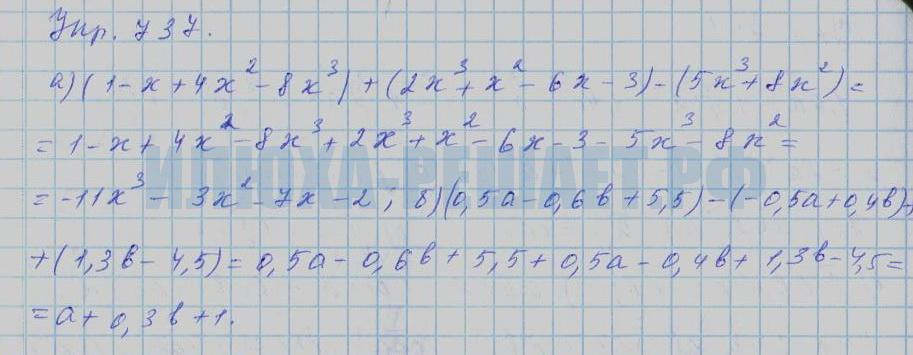 Упр. 737.
а) (1 - x + 4x² - 8x³) + (2x³ + x² - 6x - 3) - (5x³ + 8x²) =
= 1 - x + 4x² - 8x³ + 2x³ + x² - 6x - 3 - 5x³ - 8x² =
= -11x³ - 3x² - 7x - 2; б) (0,5a - 0,6b + 5,5) - (-0,5a + 0,4b) +
+ (1,3b - 4,5) = 0,5a - 0,6b + 5,5 + 0,5a - 0,4b + 1,3b - 4,5 =
= a + 0,3b + 1.